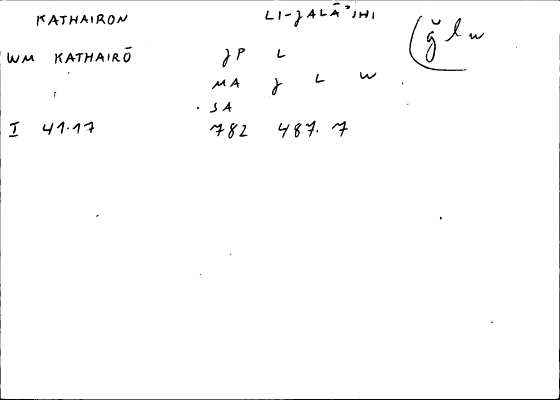 KATHAIRON LI-JALĀ'IHI
WM KATHAIRŌ JP L (ǧ l w
MA J L W
SA
I 41.17 782 487.7